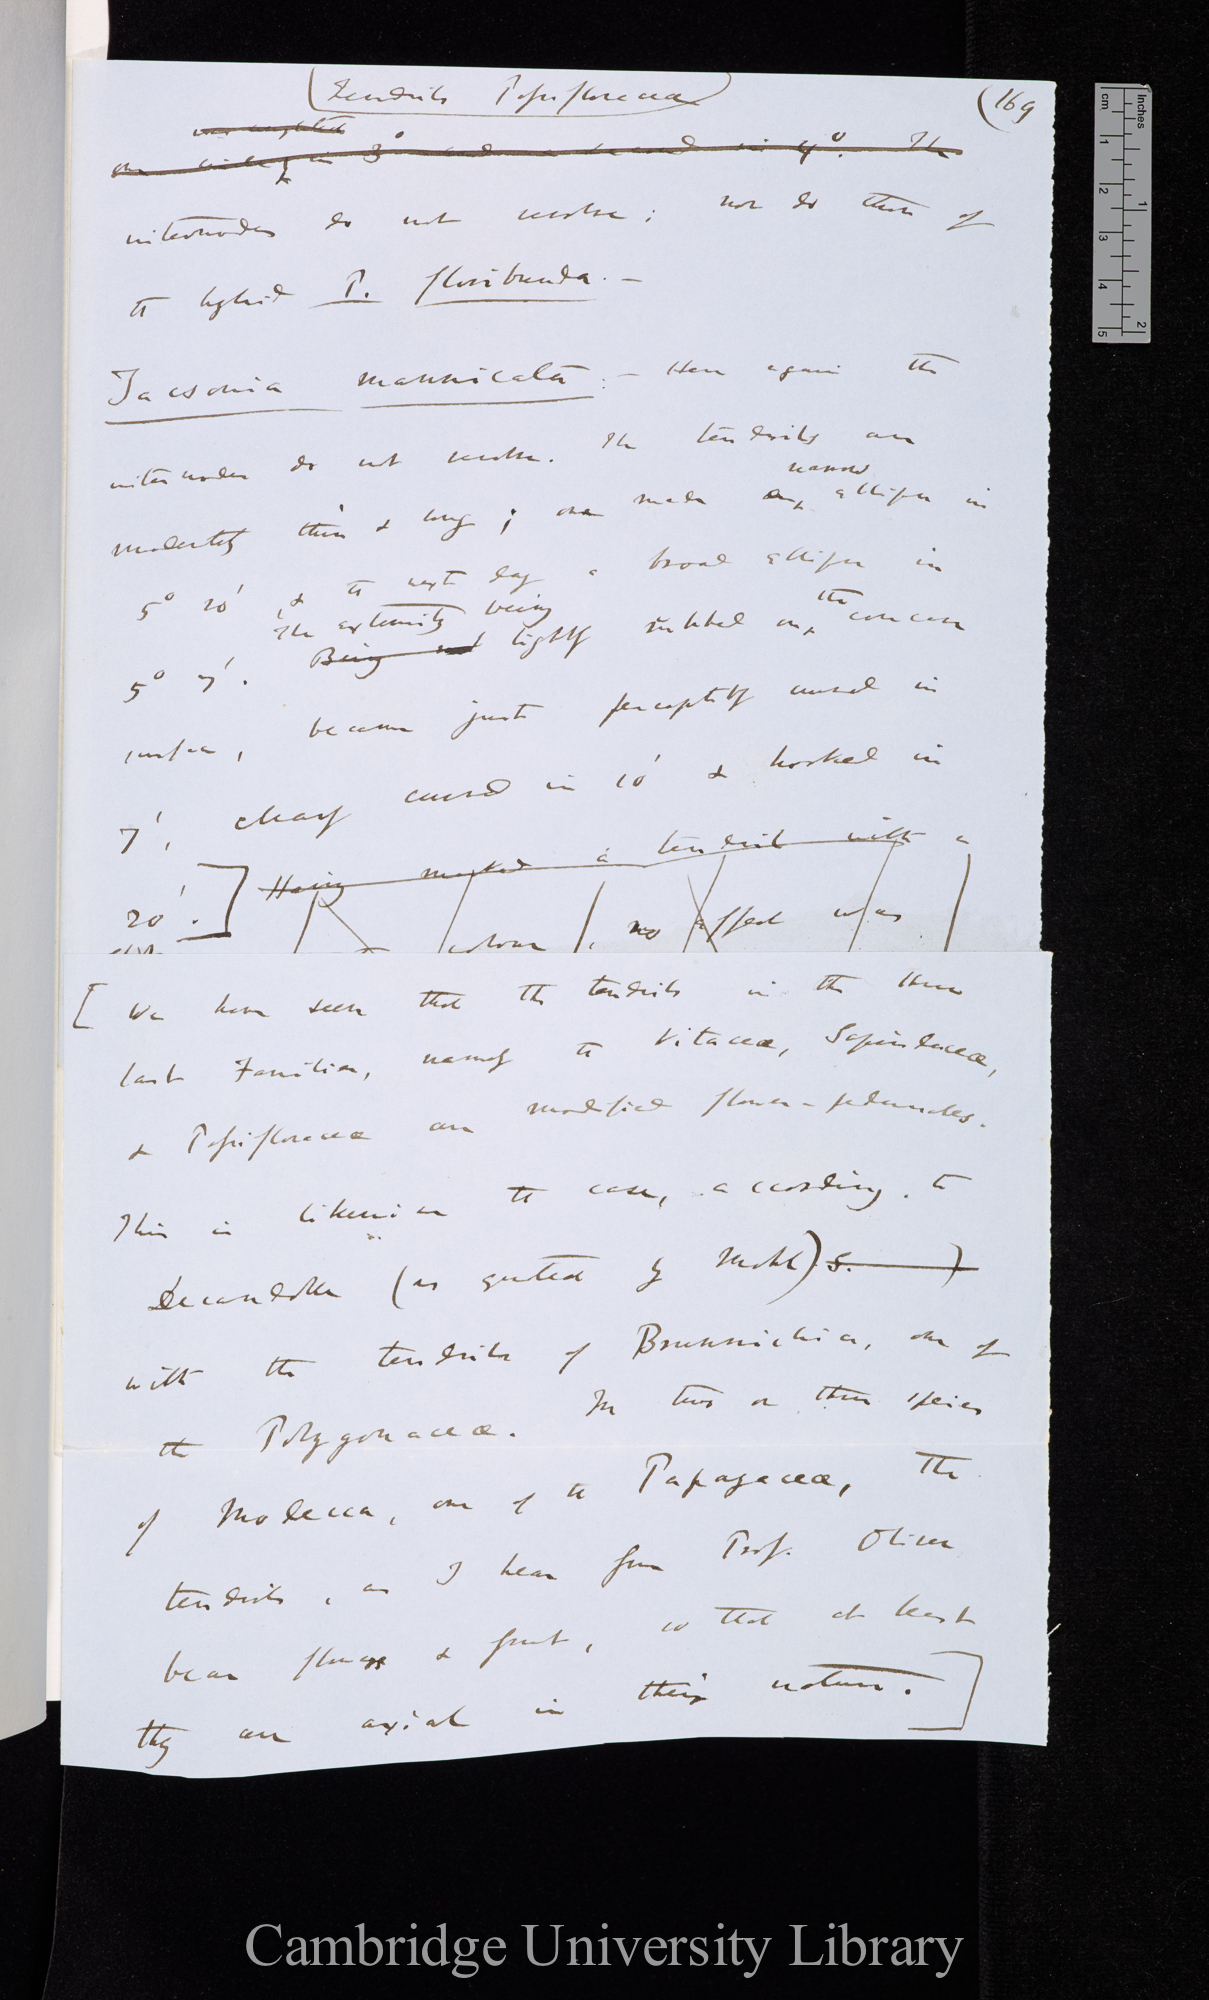 Tendrils Passifloraceæ
(169
was weighted
on circle in 3° and a second in 4°. The
internodes do not revolve; nor do those of
the hybrid P. floribunda. —
Tacsonia mannicata: — Here again the
internodes do not revolve. The tendrils are
narrow
moderately thin & long; one made an ellipse in
5° 20', & the next day a broad ellipse in
The extremity being
the
5° 7'. Being lightly rubbed on concave
surface, became just perceptibly curved in
7', clearly curved in 10' & hooked in
20'.] Having marked a tendril with
colour, no effect was
[We have seen that the tendrils in the three
last Families, namely the Vitaceæ, Sapindaceæ,
& Passifloraceæ are modified flower-peduncles.
This is likewise the case, according to
Decandolle (as quoted by Mohl) s.
with the tendrils of Brunnichia, one of
the Polygonaceæ. In two or three species
of Modecca, one of the Papayaceæ, the
tendrils, as I hear from Prof. Oliver
bear flowers & fruit, so that at least
they are axial in their nature.]
inches
cm
1
2
3
4
5
1
2
Cambridge University Library